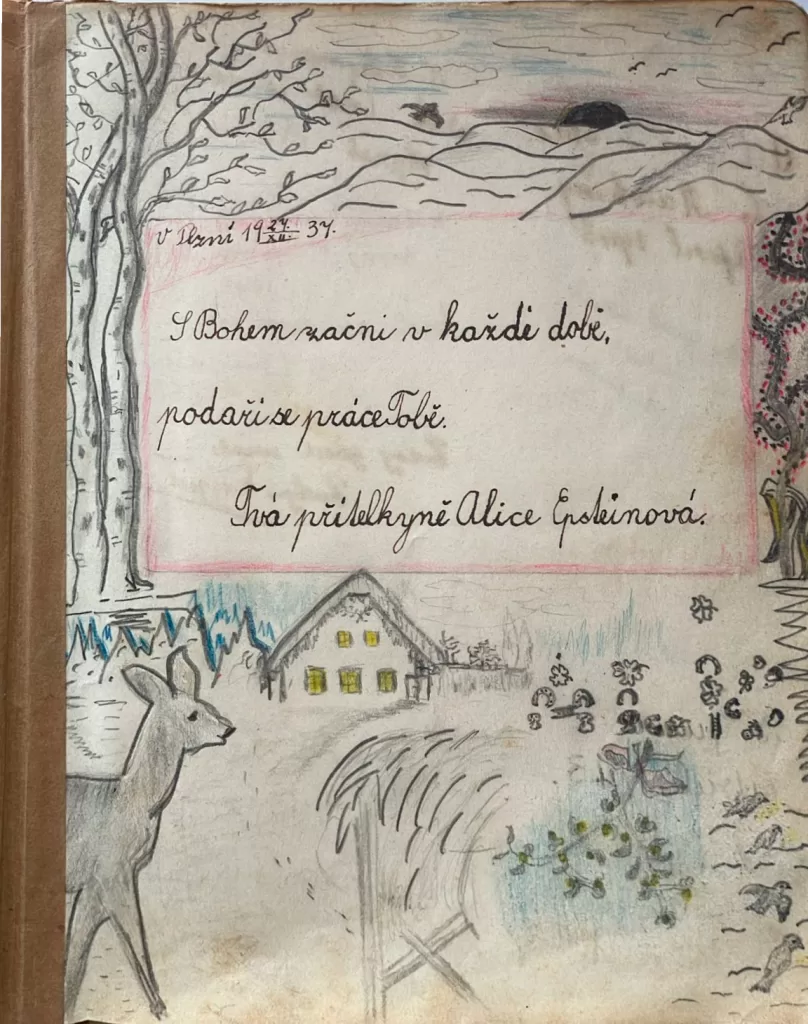 V Plzni 19 27./XII. 37.
S Bohem začni v každé době,
podaří se práce Tobě.
Tvá přítelkyně Alice Epsteinová.